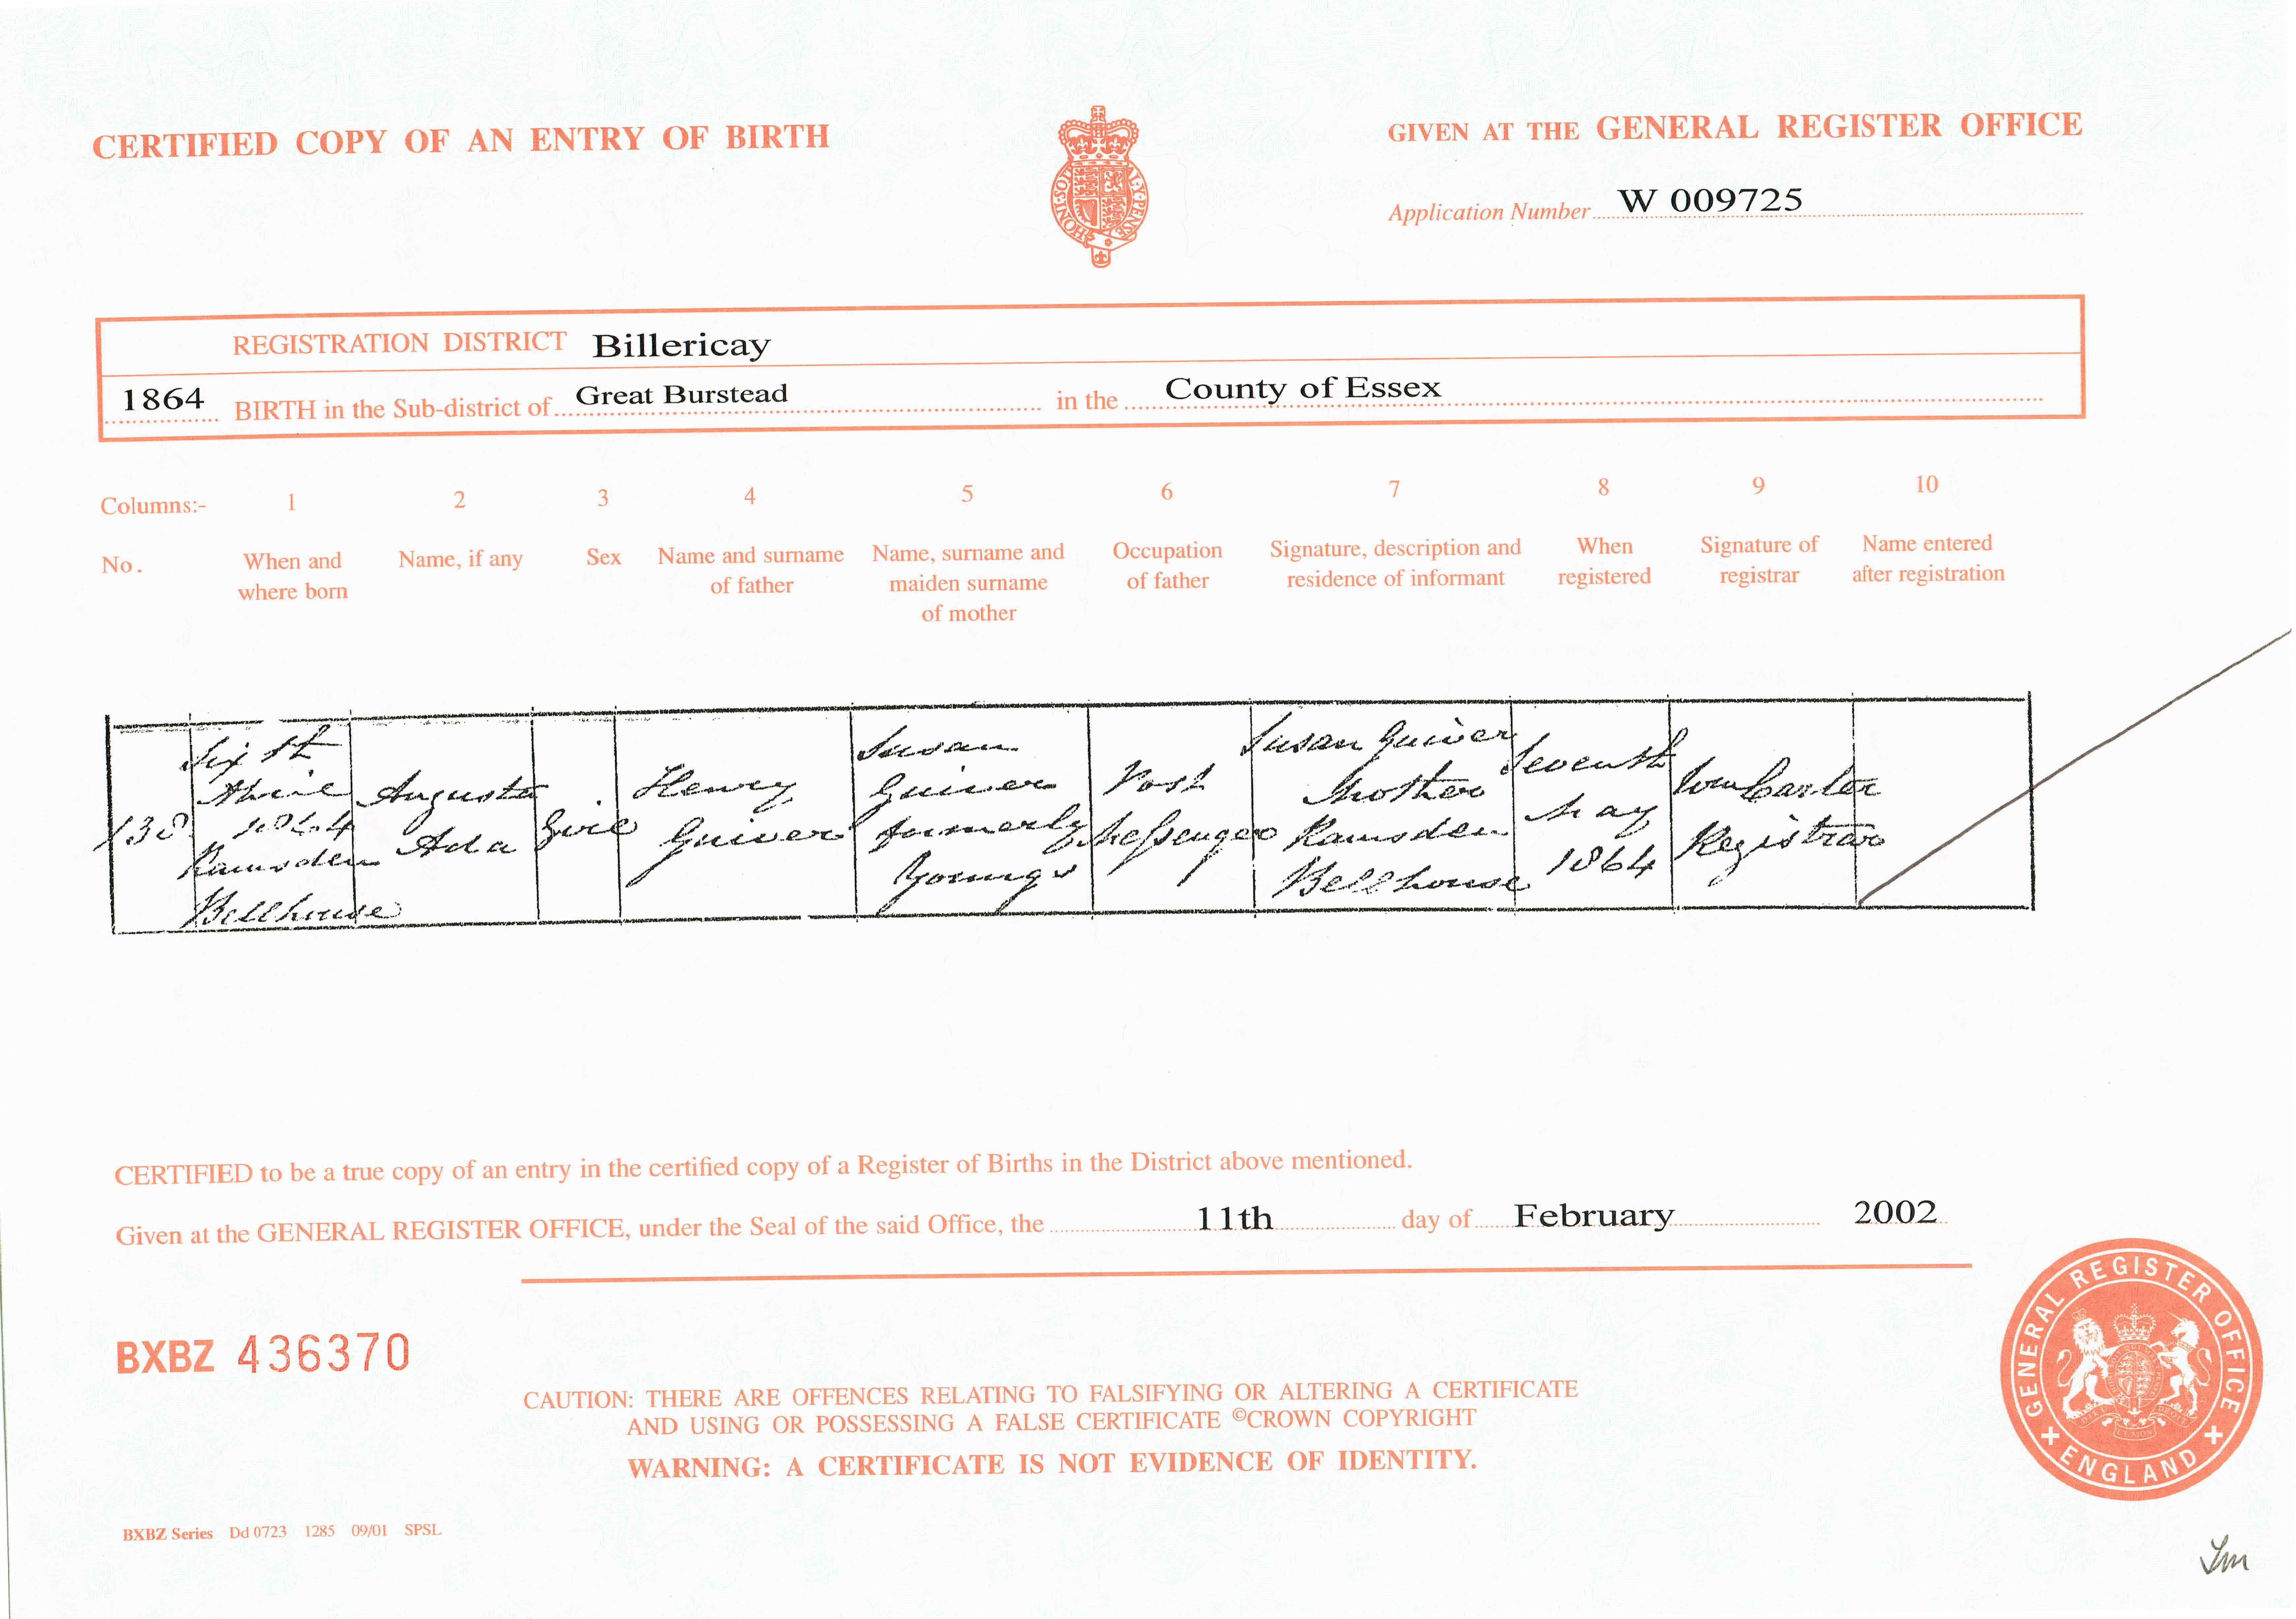 CERTIFIED COPY OF AN ENTRY OF BIRTH
HONI·SOIT AL·Y·PENSE
GIVEN AT THE GENERAL REGISTER OFFICE
Application Number W 009725
REGISTRATION DISTRICT Billericay
1864 BIRTH in the Sub-district of Great Burstead in the County of Essex
Columns:- 1 2 3 4 5 6 7 8 9 10
No. When and where born Name, if any Sex Name and surname of father Name, surname and maiden surname of mother Occupation of father Signature, description and residence of informant When registered Signature of registrar Name entered after registration
138
Sixth
April
1864
Ramsden
Bellhouse
Augusta
Ada
Girl
Henry
Guiver
Susan
Guiver
formerly
Youngs
Post
Messenger
Susan Guiver
Mother
Ramsden
Bellhouse
Seventh
May
1864
Wm Carter
Registrar
CERTIFIED to be a true copy of an entry in the certified copy of a Register of Births in the District above mentioned.
Given at the GENERAL REGISTER OFFICE, under the Seal of the said Office, the 11th day of February 2002
BXBZ 436370
CAUTION: THERE ARE OFFENCES RELATING TO FALSIFYING OR ALTERING A CERTIFICATE
AND USING OR POSSESSING A FALSE CERTIFICATE ©CROWN COPYRIGHT
WARNING: A CERTIFICATE IS NOT EVIDENCE OF IDENTITY.
GENERAL REGISTER OFFICE
ENGLAND
BXBZ Series Dd 0723 1285 09/01 SPSL